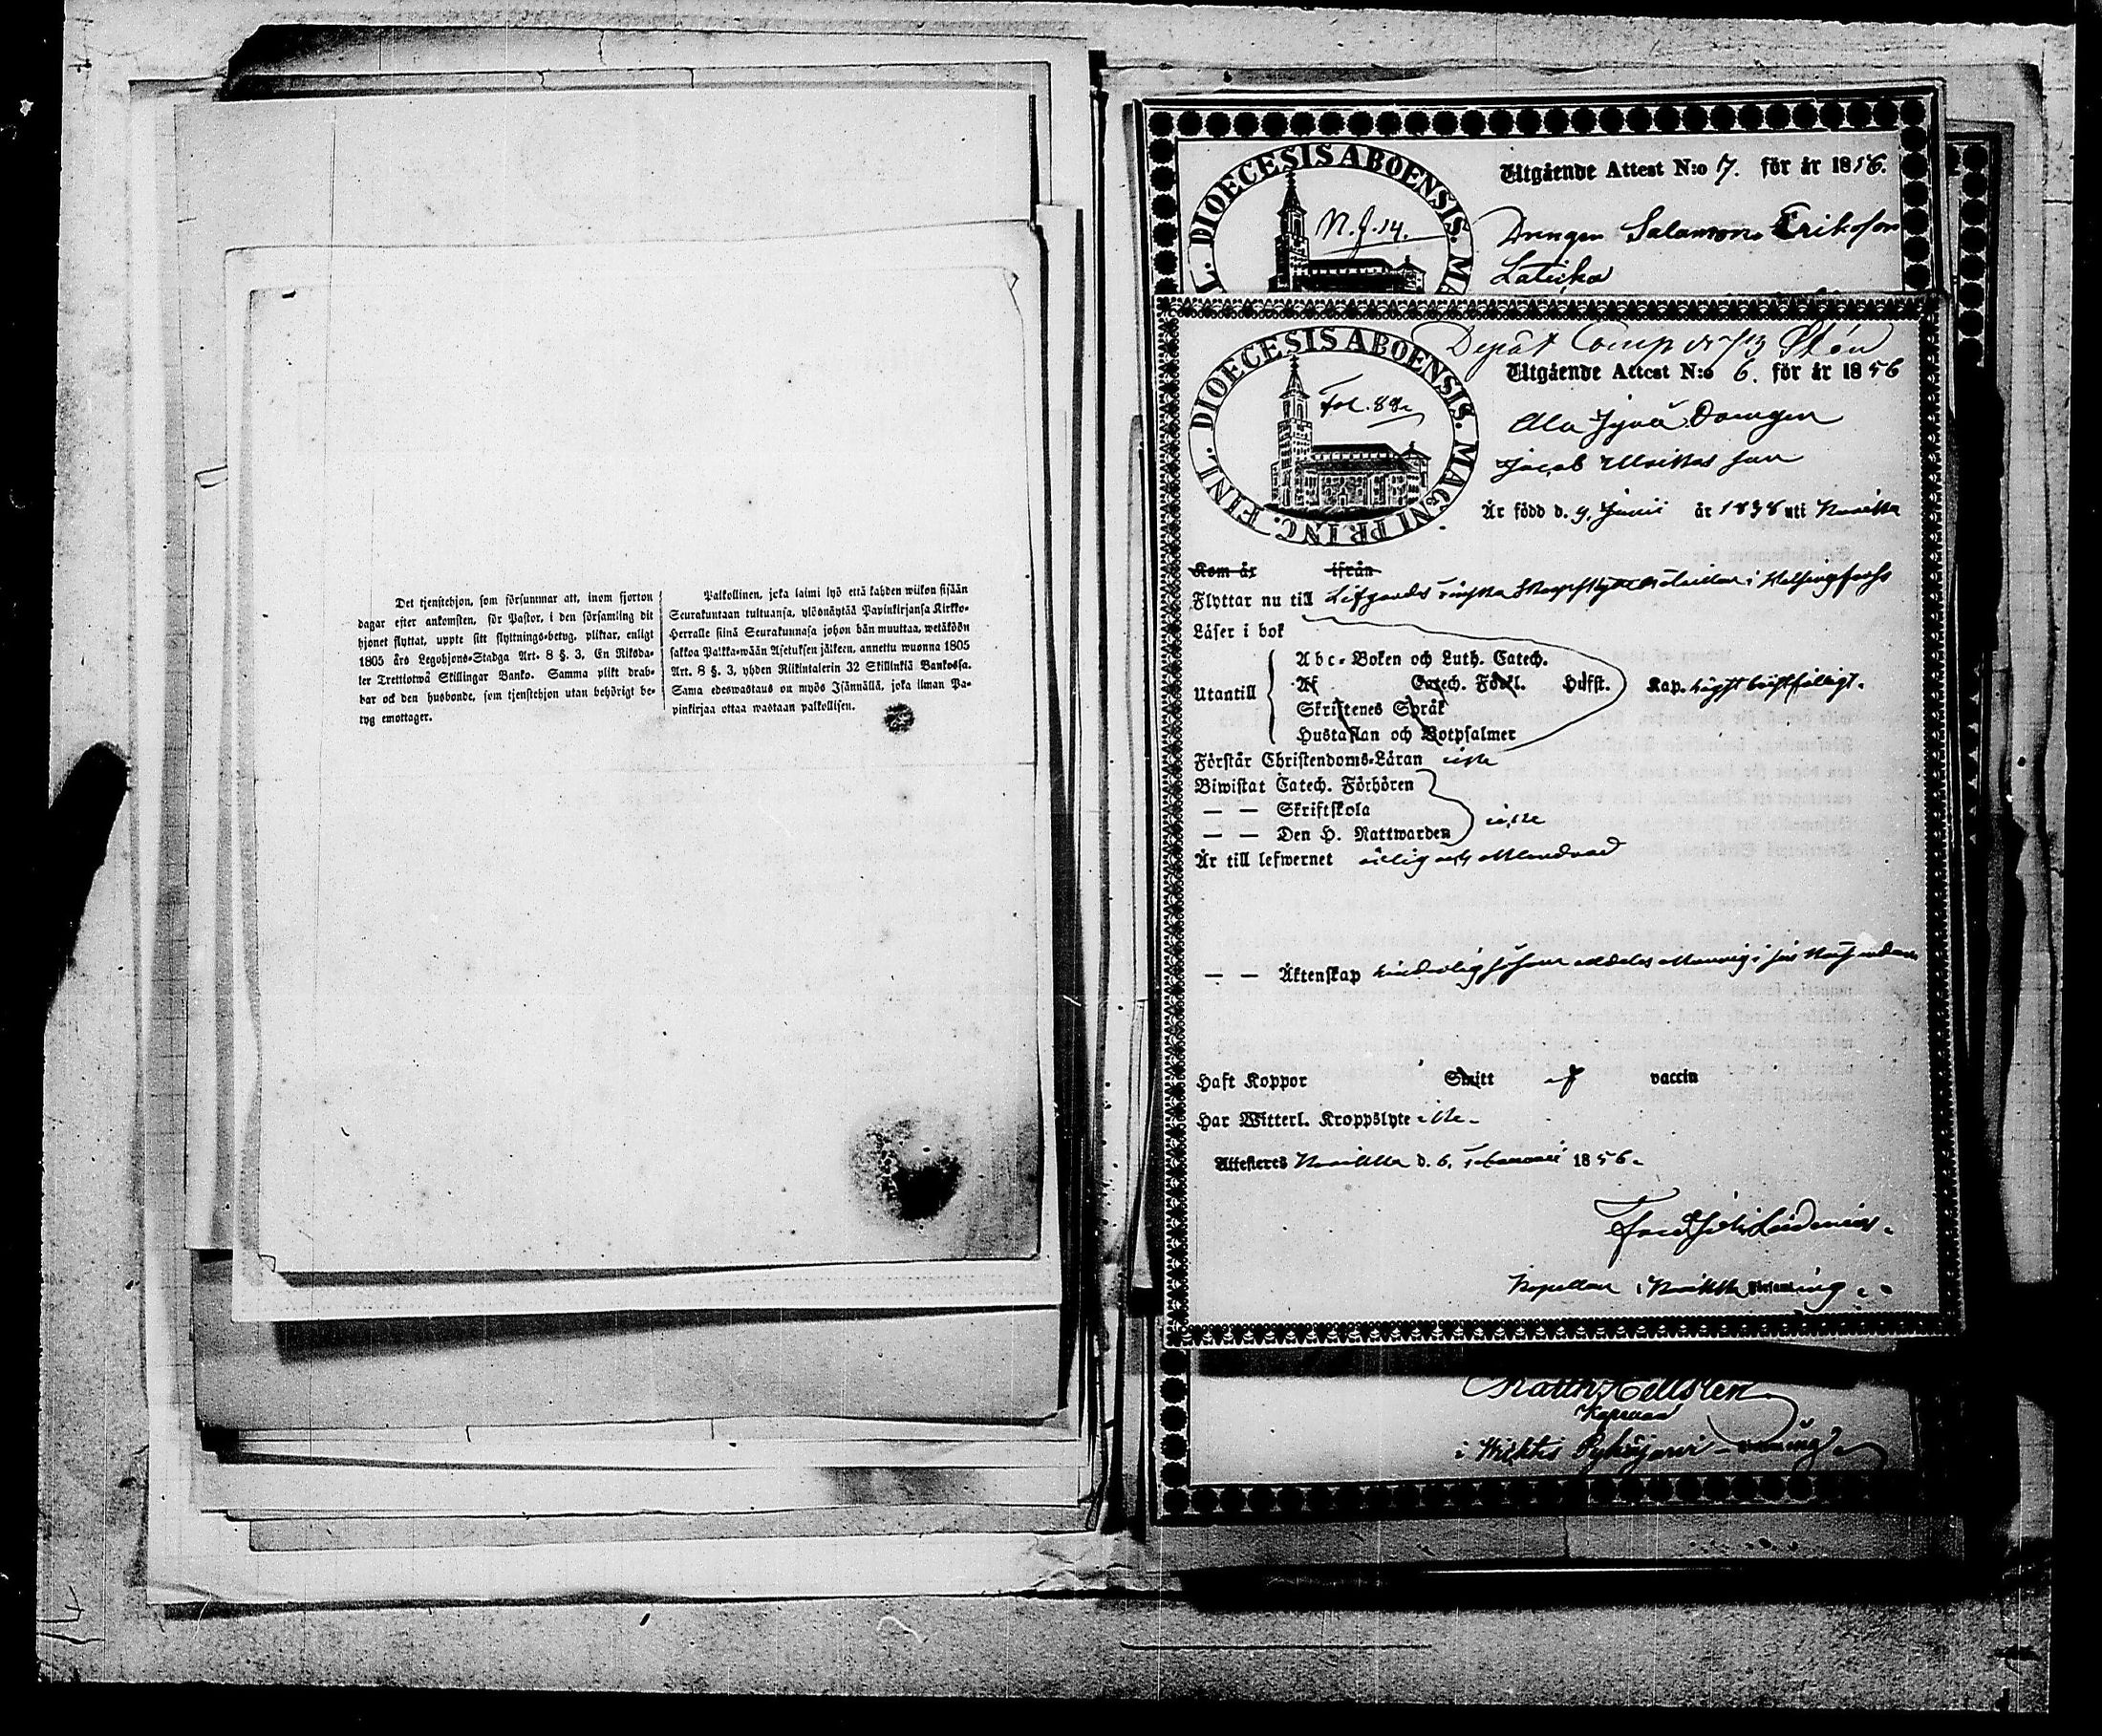 Det tjenstehjon, som försummar att, inom fjorton
dagar efter ankomsten, för Pastor, i den församling dit
hjonet flyttat, uppte sitt flyttnings-betyg, pliktar, enligt
1805 års Legohjons-Stadga Art. 8 §. 3, En Riksda-
ler Trettiotwå Skillingar Banko. Samma plikt drab-
bar ock den husbonde, som tjenstehjon utan behörigt be-
tyg emottager.
Palkollinen, joka laimi lyö että kahden wiikon sisään
Seurakuntaan tultuansa, ylösnäytää Papinkirjansa Kirkko-
Herralle siinä Seurakunnasa johon hän muuttaa, wetäköön
sakkoa Palkka-wään Asetuksen jälkeen, annettu wuonna 1805
Art. 8 §. 3, yhden Riikintalerin 32 Skillinkiä Bankossa.
Sama edeswastaus on myös Isännällä, joka ilman Pa-
pinkirjaa ottaa wastaan palkollisen.
DIOECESIS ABOENSIS. MA
N. J. 14.
Utgående Attest N:o 7. för år 1856.
Drengen Salamon Eriksson
DIOECESIS ABOENSIS. MAGNI PRINC. FINL.
Fol. 88
Depôt Comp
Utgående Attest N:o 6. för år 1856
Ala Jyvä Drengen
Jacob son
Är född d. 9. Junii år 1838 uti
Kom år ifrån
Flyttar nu till Lifgardes Finska Skarpskytte Bataillon i Helsingfors
Läser i bok
Utantill
Abc-Boken och Luth. Catech.
Af Catech. Förkl. Hufst. Kap. högst bristfälligt.
Skriftenes Språk
Hustaflan och Botpsalmer
Förstår Christendoms-Läran icke
Biwistat Catech. Förhören
— — Skriftskola icke
— — Den H. Nattwarden
Är till lefwernet ärlig och
— — Äktenskap
Haft Koppor Smitt af vaccin
Har Witterl. Kroppslyte icke.
Attesteres d. 6. Februarii 1856.
Kapellan i Församling.
Matth. Hellsten
Kapellan
i Wichtis Pyhäjärvi